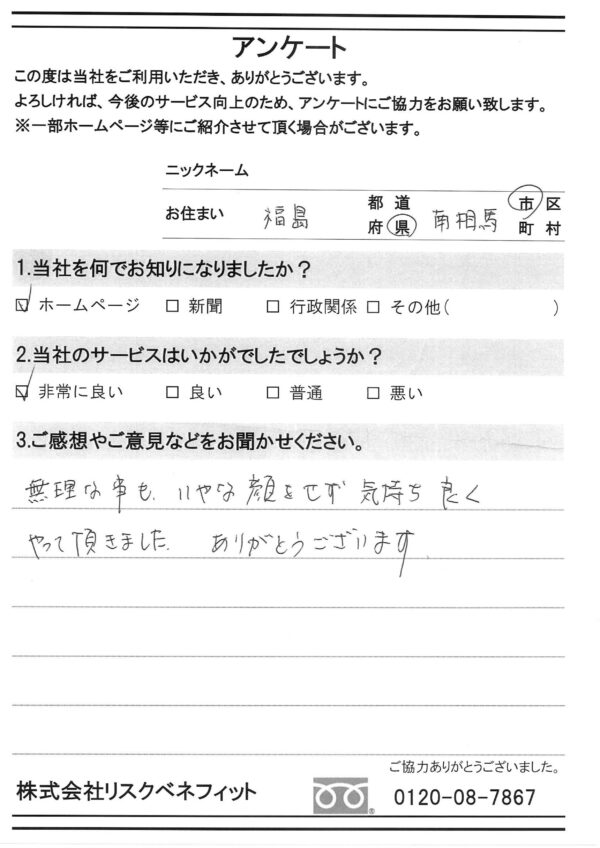 アンケート
この度は当社をご利用いただき、ありがとうございます。
よろしければ、今後のサービス向上のため、アンケートにご協力をお願い致します。
※一部ホームページ等にご紹介させて頂く場合がございます。
ニックネーム
お住まい 福島 都道府県 南相馬 市区町村
1.当社を何でお知りになりましたか？
☑ ホームページ □ 新聞 □ 行政関係 □ その他( )
2.当社のサービスはいかがでしたでしょうか？
☑ 非常に良い □ 良い □ 普通 □ 悪い
3.ご感想やご意見などをお聞かせください。
無理な事も、いやな顔をせず 気持ち良く
やって頂きました。 ありがとうございます。
ご協力ありがとうございました。
株式会社リスクベネフィット 0120-08-7867